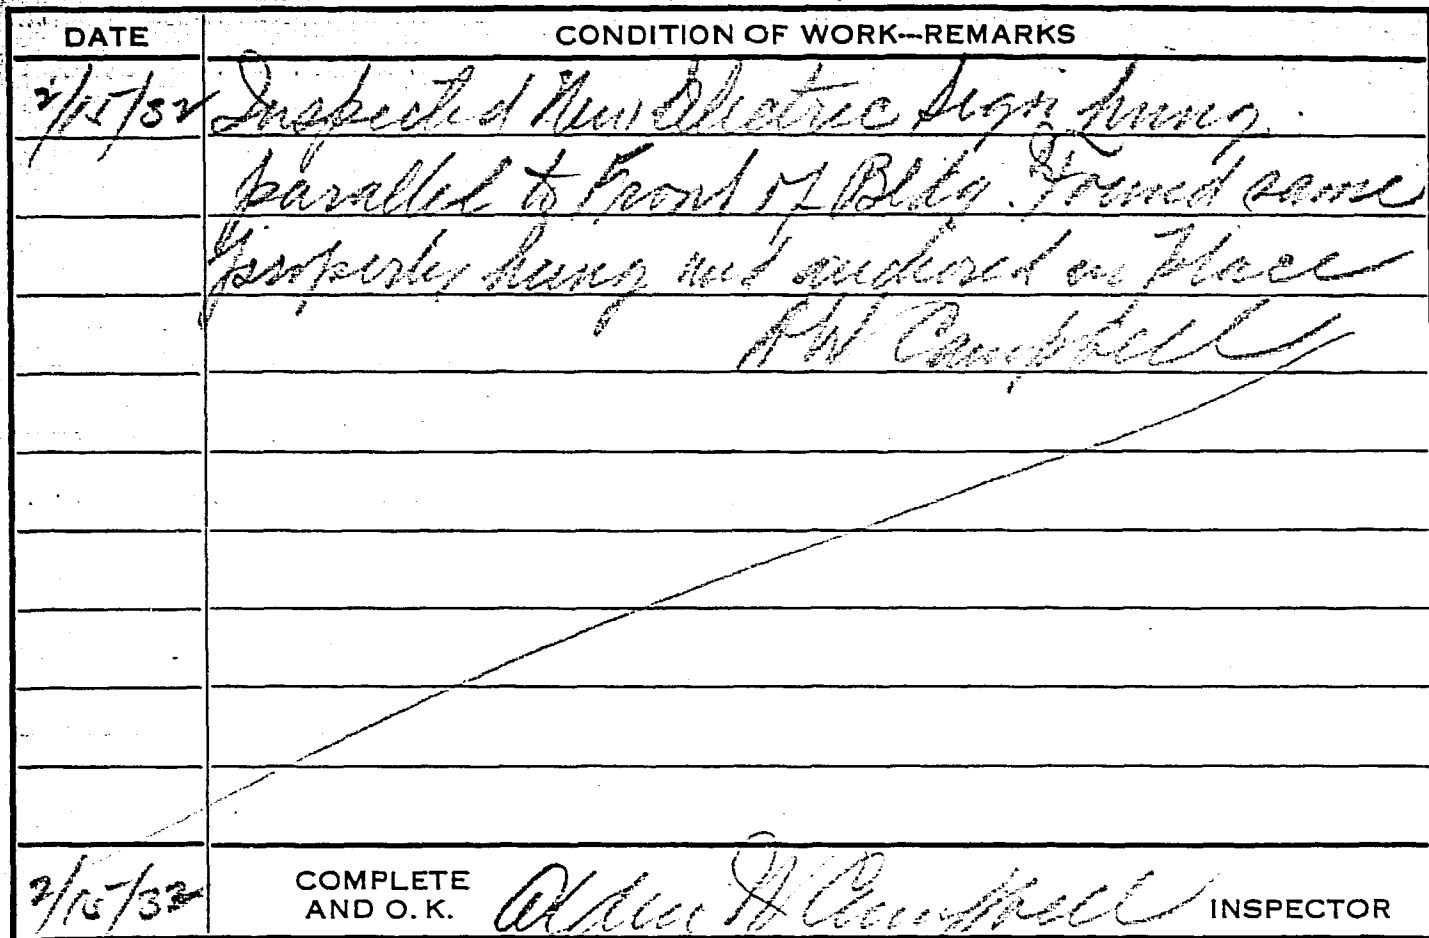 DATE CONDITION OF WORK—REMARKS
2/15/32 Inspected New Electric Sign hung
parallel to Front of Bldg. Found same
properly hung and anchored in Place
AW Campbell
2/15/32 COMPLETE AND O. K. Alden W Campbell INSPECTOR